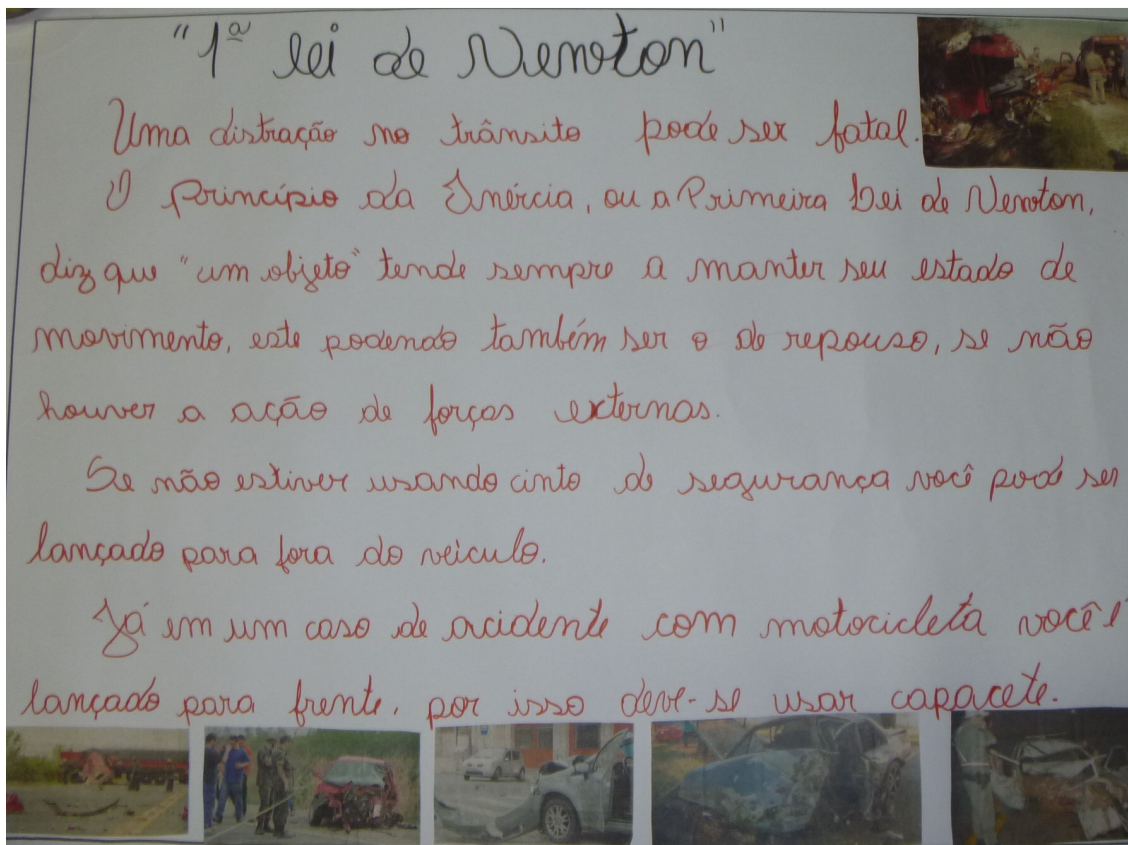 "1ª lei de Newton"
Uma distração no trânsito pode ser fatal.
O princípio da Inércia, ou a Primeira Lei de Newton,
diz que "um objeto" tende sempre a manter seu estado de
movimento, este podendo também ser o de repouso, se não
houver a ação de forças externas.
Se não estiver usando cinto de segurança você pode ser
lançado para fora do veiculo.
Já em um caso de acidente com motocicleta você é
lançado para frente, por isso deve-se usar capacete.